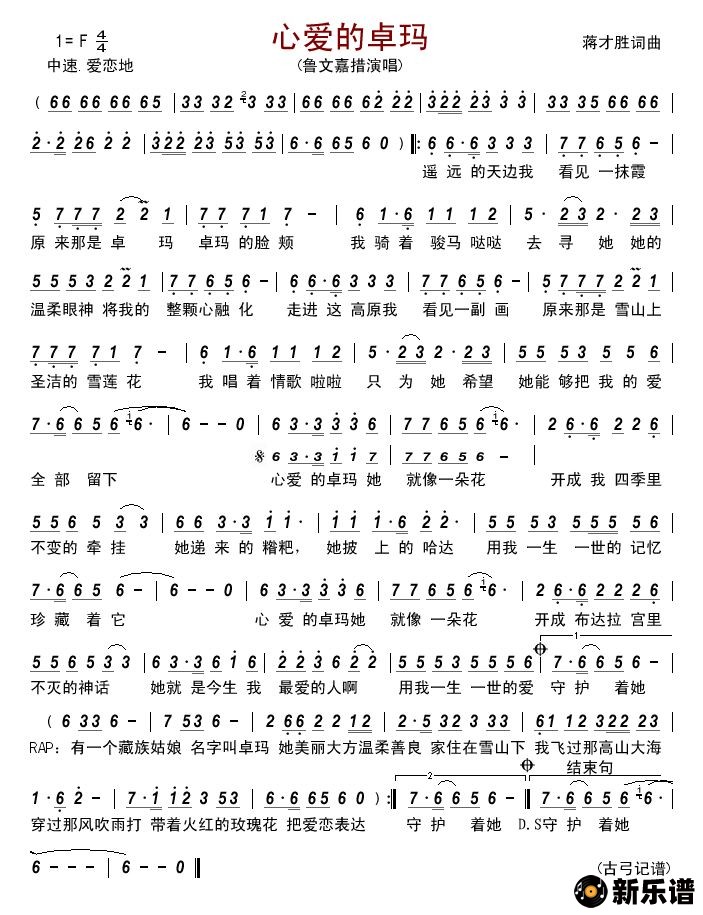 心爱的卓玛
1= F 4/4
蒋才胜词曲
中速.爱恋地
(鲁文嘉措演唱)
( 66 66 66 65 | 33 32 2 3 33 | 66 66 62 22 | 322 23 33 | 33 35 66 66 |
2·2 26 22 | 322 23 53 53 | 6·6 65 60 ) ‖: 66·6 333 | 77 65 6 - |
遥 远 的天边我 看见 一抹霞
5 777 2 2 1 | 77 71 7 - | 6 1·6 11 12 | 5· 23 2· 23 |
原 来那是 卓 玛 卓玛 的脸 颊 我 骑 着 骏马 哒哒 去 寻 她 她的
55 532 2 21 | 77 65 6 - | 66·6 333 | 77 65 6 - | 5 777 2 21 |
温柔眼神 将我的 整颗心融 化 走进 这 高原我 看见一副 画 原来那是 雪山上
777 71 7 - | 6 1·6 11 12 | 5· 23 2· 23 | 55 53 5 56 |
圣洁的 雪莲 花 我 唱 着 情歌 啦啦 只 为 她 希望 她能 够把 我 的 爱
7·6 65 6 i 6· | 6 - - 0 | 63·3 33 3 | 77 65 6 i 6· | 26·6 22 6 |
𝄋 6 3·3 i i 7 | 77 65 6 - |
全 部 留下 心爱 的卓玛 她 就像一朵花 开成 我 四季里
55 65 33 | 66 3·3 11· | 11 1·6 22· | 55 53 555 56 |
不变的 牵 挂 她递 来 的 糌粑, 她披 上 的 哈达 用我 一生 一世的 记忆
7·6 65 6 - | 6 - - 0 | 63·3 33 3 | 77 65 6 i 6· | 26·6 22 2 |
珍 藏 着 它 心 爱 的卓玛她 就像 一朵花 开成 布达拉 宫里
1
55 65 33 | 63·3 61 6 | 22 36 22 | 55 53 55 56 | 7·6 65 6 - |
不灭的神话 她就 是今生 我 最爱的人啊 用我一生 一世的爱 守 护 着她
( 6 33 6 - | 7 53 6 - | 266 22 12 | 22 25 33 | 61 12 322 22 |
RAP: 有一个藏族姑娘 名字叫卓玛 她美丽大方温柔善良 家住在雪山下 我飞过那高山大海
结束句
2
1·6 2 - | 7·1 12 3 53 | 6·6 65 60 ) :‖ 7·6 65 6 - ‖ 7·6 65 6 i 6· |
穿过那风吹雨打 带着火红的玫瑰花 把爱恋表达 守 护 着她 D.S守护 着她
6 - - - | 6 - - 0 ‖
(古弓记谱)
新乐谱